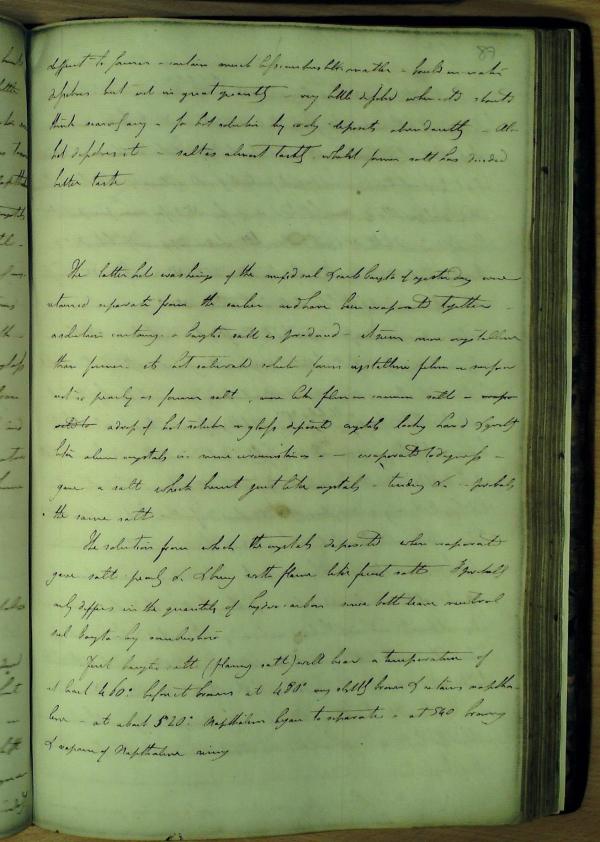 89
different to former - contain much less combustible matter - boiled in water
dissolves but not in great quantity - very little dissolved when cold should
think scarcely any - for hot solution by cooling deposits abundantly - Alc
hot dissolves it - salt as almost tasteless whilst former salt has decided
bitter taste
The latter hot washings of the mixed sul & carb baryta of yesterday were
retained separate from the earlier and have been evaporated together -
a solution containing a baryta salt is produced - it seems more crystalline
than former. its hot saturated solution forms crystalline film on surface
not so pearly as former salt, more like film on common salt -
a drop of hot solution on glass deposited crystals looking hard &
like alum crystals in same circumstances - evaporated to dryness -
gave a salt which burnt just like crystals - tinder &c - probably
the same salt
The solution from which the crystals deposited when evaporated
gave salt pearly & burning with flame like first salt & probably
only differs in the quantity of hydro carbon since both leave neutral
sul baryta by combustion
First baryta salt (flaming salt) will bear a temperature of
at least 460° before it browns at 480° very slightly brown & retains naptha-
line - at about 520° Napthaline began to separate & at 540 browning
& vapour of Napthaline rising